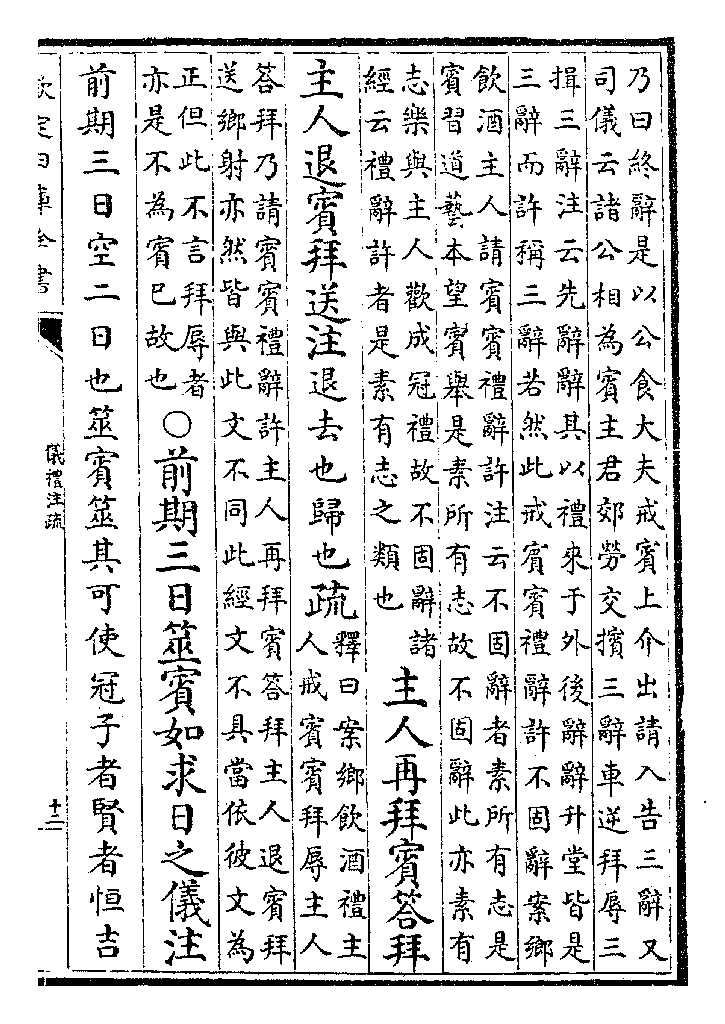 乃曰終辭是以公食大夫戒賓上介出請入告三辭又
司儀云諸公相為賓主君郊勞交擯三辭車逆拜辱三
揖三辭注云先辭辭其以禮來于外後辭辭升堂皆是
三辭而許稱三辭若然此戒賓賓禮辭許不固辭案鄉
飲酒主人請賓賓禮辭許注云不固辭者素所有志是
賓習道藝本望賓舉是素所有志故不固辭此亦素有
志樂與主人歡成冠禮故不固辭諸
經云禮辭許者是素有志之類也
主人再拜賓答拜
主人退賓拜送注退去也歸也疏
釋曰案鄉飲酒禮主
人戒賓賓拜辱主人
答拜乃請賓賓禮辭許主人再拜賓答拜主人退賓拜
送鄉射亦然皆與此文不同此經文不具當依彼文為
正但此不言拜辱者
亦是不為賓巳故也
○前期三日筮賓如求日之儀注
前期三日空二日也筮賓筮其可使冠子者賢者恒吉
欽定四庫全書
儀禮注疏
十二